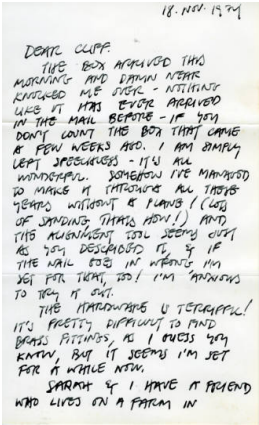 18. NOV. 1974
DEAR CLIFF.
THE BOX ARRIVED THIS
MORNING AND DAMN NEAR
KNOCKED ME OVER - NOTHING
LIKE IT HAS EVER ARRIVED
IN THE MAIL BEFORE - IF YOU
DON'T COUNT THE BOX THAT CAME
A FEW WEEKS AGO. I AM SIMPLY
LEFT SPEECHLESS - IT'S ALL
WONDERFUL. SOMEHOW I'VE MANAGED
TO MAKE IT THROUGH ALL THESE
YEARS WITHOUT A PLANE! (LOTS
OF SANDING THATS HOW!) AND
THE ALIGNMENT TOOL SEEMS JUST
AS YOU DESCRIBED IT, & IF
THE NAIL GOES IN WRONG I'M
SET FOR THAT, TOO! I'M ANXIOUS
TO TRY IT OUT.
THE HARDWARE IS TERRIFFIC!
IT'S PRETTY DIFFICULT TO FIND
BRASS FITTINGS, AS I GUESS YOU
KNOW, BUT IT SEEMS I'M SET
FOR A WHILE NOW.
SARAH & I HAVE A FRIEND
WHO LIVES ON A FARM IN